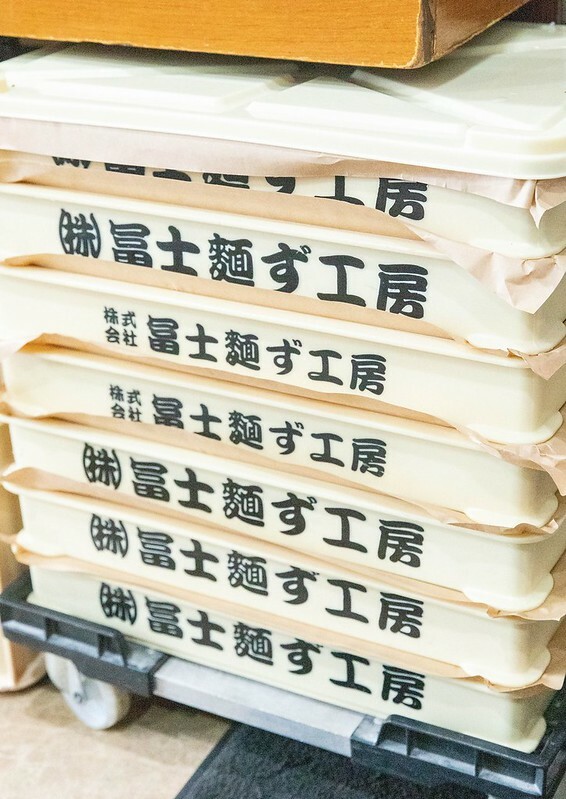 ㈱冨士麵ず工房
㈱冨士麵ず工房
株式会社 冨士麵ず工房
株式会社 冨士麵ず工房
㈱冨士麵ず工房
㈱冨士麵ず工房
㈱冨士麵ず工房